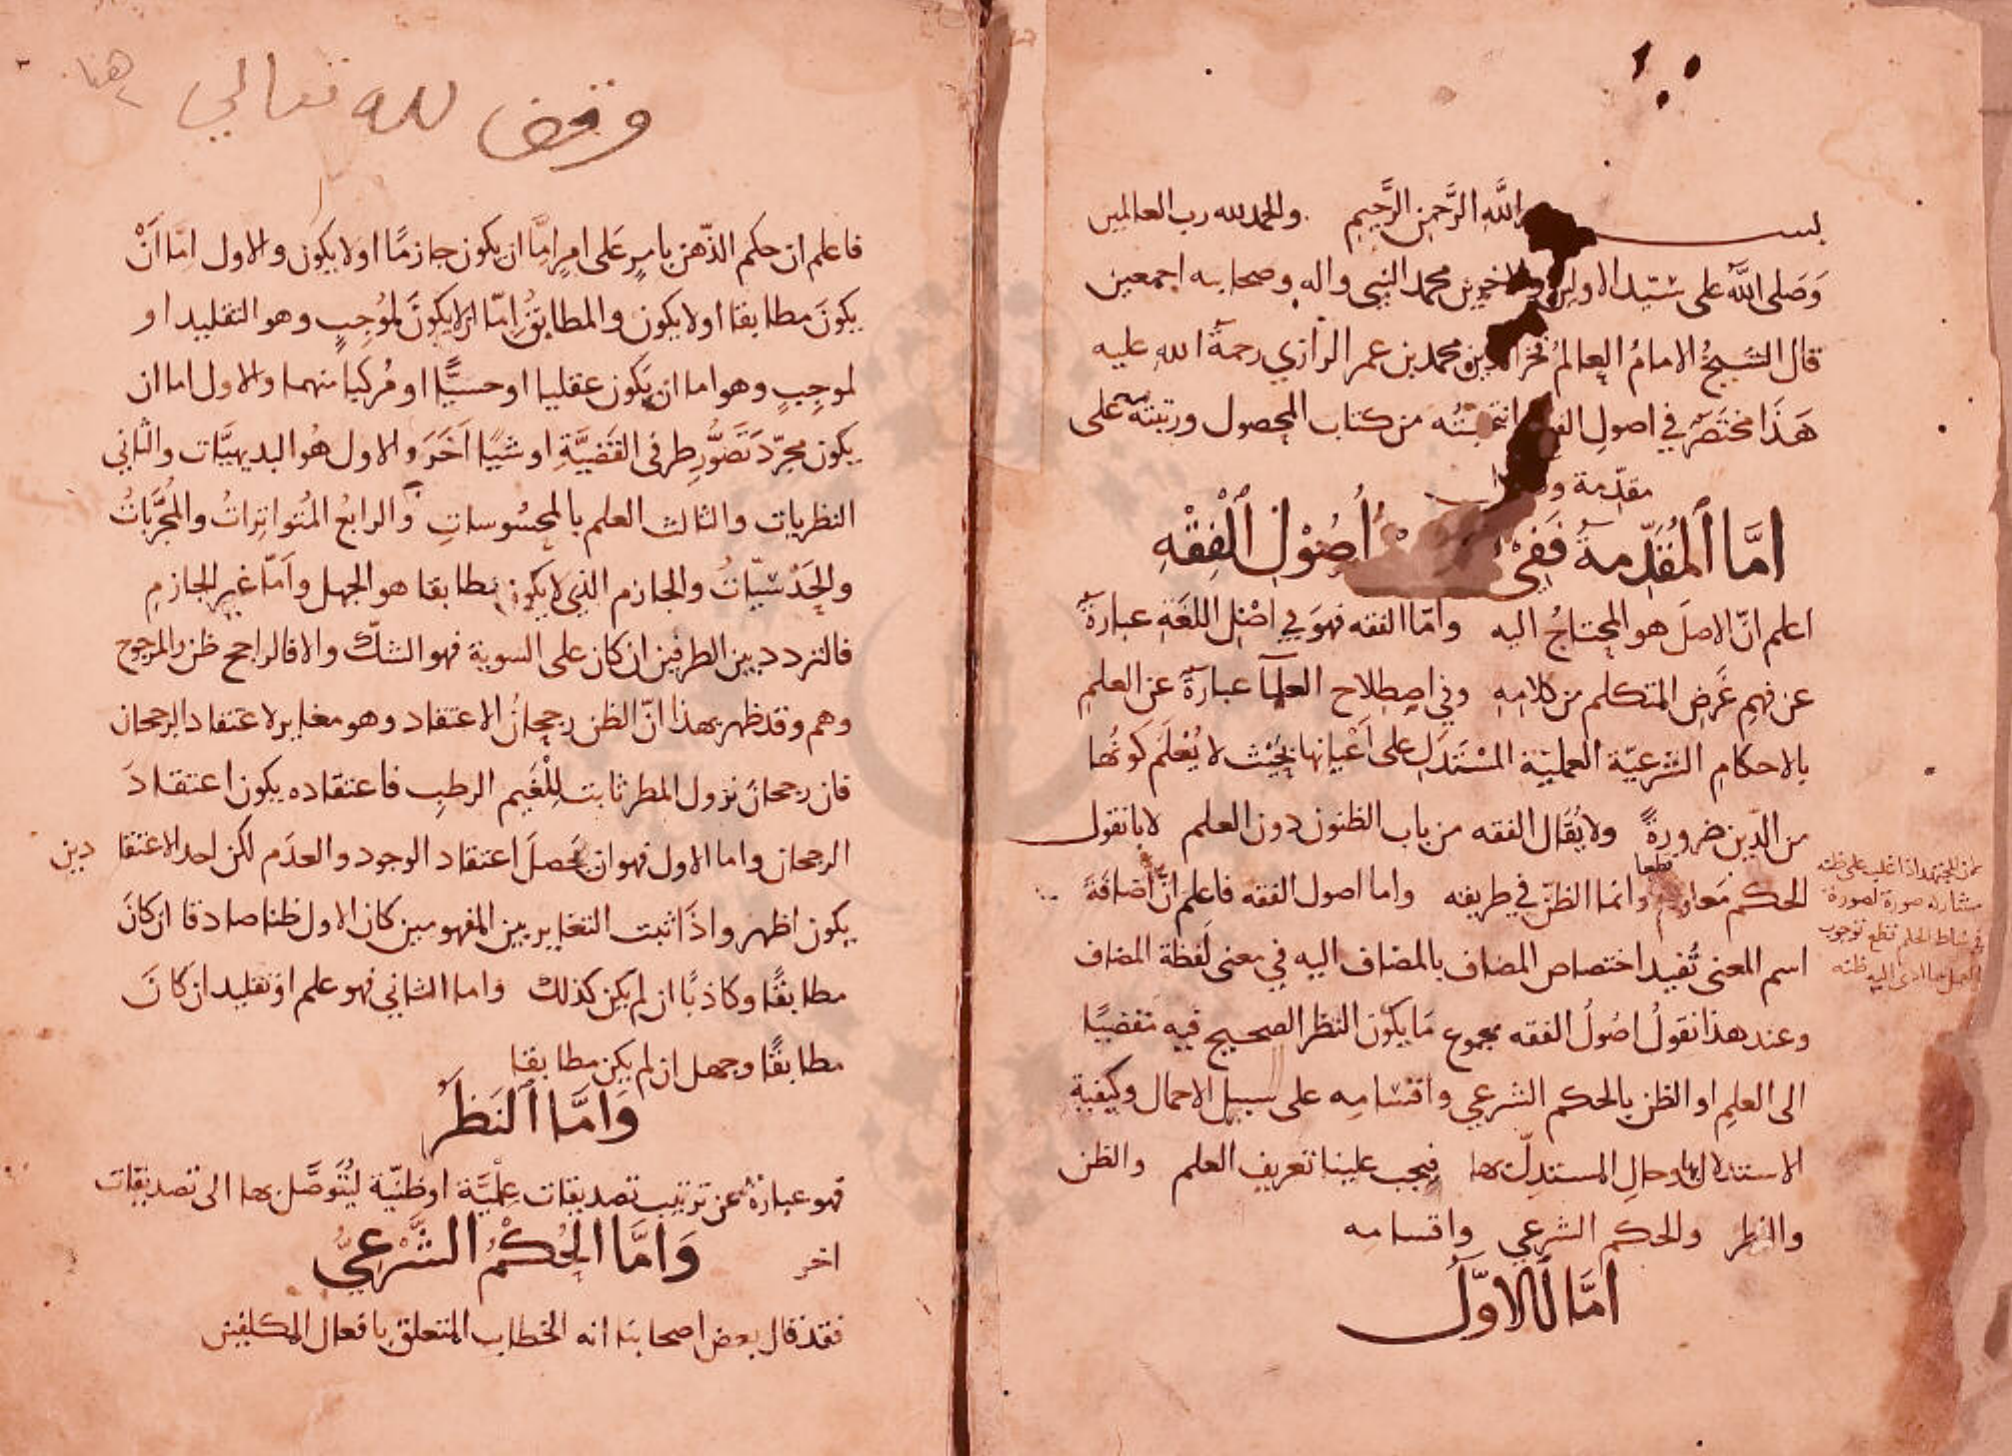 بسم الله الرَّحمن الرَّحيم والحمد لله رب العالمين
وَصَلى اللَّه على سيّد الاولين والاخرين محمد النبي واله وصحابه اجمعين
قال الشيخُ الامامُ العالمُ فخر الدين محمد بن عمر الرازي رحمةُ الله عليه
هَذَا مختَصَرٌ في اصولِ الفقه انتخبتُه من كتاب المحصول ورتبته على
مقدّمة
امَّا المُقَدِّمةُ فَفِي اُصُوْلِ الْفِقْهِ
اعلم انّ الاصلَ هو المحتاجُ اليه وامّا الفقه فهوَ في اصْلِ اللغَةِ عبارةٌ
عن فهمِ غَرضِ المتكلم من كلامِهِ وفي اصطِلاح العلمآ عبارةٌ عن العلمِ
بالاحكامِ الشرعيّة العمليّة المسْتَدَلِ على اَعْيانها بحَيْث لا يُعْلَم كَونُها
من الدّين ضرورةً ولا يُقَال الفقه من باب الظنون دون العلم لانا نقول
الحكم مَعلوم قطعا وانما الظنّ في طريقه واما اصول الفقه فاعلم انّ اضافَةَ
اسم المعنى تُفيد اختصاص المضاف بالمضاف اليه في معنى لَفظة المضاف
وعند هذا نقولُ اصُولُ الفقه مجموع مَا يكون النظر الصحيح فيه مفضيًا
الى العلمِ او الظن بالحكم الشرعي واقسامِه على سبيل الاجمال وكيفيةِ
الاستدلال بها وحالِ المستدِلّ بها فيجب علينا تعريف العلم والظن
والنظر والحكم الشرعي واقسامه
امَّا الاوَّل
من المجتهد اذا غلب على ظنه
مشاركة صورة لصورة
في مناط الحكم قطع بوجوب
العمل بما ادى اليه ظنه
وقف لله تعالى
فاعلم ان حكم الذّهن بامرٍ عَلى امرٍ امَّا ان يكون جازمًا او لا يكون والاول امّا اَنْ
يكونَ مطابقا او لا يكون والمطابقُ اِمّا ان لا يكونَ لمُوجِبٍ وهو التقليد او
لموجِبٍ وهو اما ان يَكون عقليا او حسيًّا او مُركبا منهما والاول اما ان
يكون مجرّد تَصَوُّرِ طرفى القَضيَّةِ او شيًا اَخَرَ والاول هُو البديهيَّات والثانى
النظريات والثالث العلم بالمحسُوساتِ والرابعُ المُتواتِراتُ والمجَرَّبَاتُ
والحَدْسيّاتُ والجازم الذي لا يكون مطابقا هو الجهل واَمّا غير الجازمِ
فالتردد بين الطرفين ان كان على السوية فهو الشكّ والا فالراجح ظن والمرجوح
وهم وقد ظهر بهذا انّ الظن رجحانُ الاعتقاد وهو مغاير لاعتقاد الرجحان
فان رجحانَ نزول المطر ثابت لِلْغَيم الرطبِ فاعتقاده يكون اعتقادَ
الرجحان واما الاول فهو ان يحصلَ اعتقاد الوجود والعدَم لكن احد الاعتقادين
يكون اظهر واذَا ثبت التغاير بين المفهومين كان الاول ظنا صادقا ان كانَ
مطابقًا وكاذبًا ان لم يكن كذلك واما الثاني فهو علم او تقليد ان كَانَ
مطابقًا وجهل ان لم يكن مطابقا
وَامَّا النَظَرُ
فهو عبارة عن ترتيب تصديقات عِلميَّة او ظنيّة ليُتَوصَّل بها الى تصديقات
اخر
وَامَّا الحُكْمُ الشَّرْعِيُّ
فقد قال بعض اصحابنا انه الخطاب المتعلق بافعال المكلفين